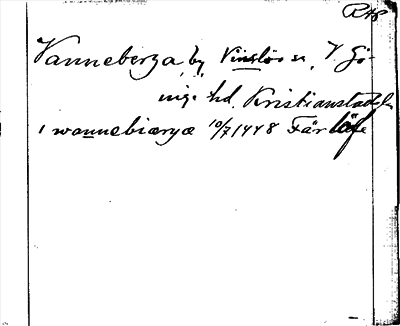 RAP
Vanneberga by Vinslövs sn, V Gö-
inge hd. Kristianstads län
1 wannebiærgæ 10/7 1448 Färlöfe